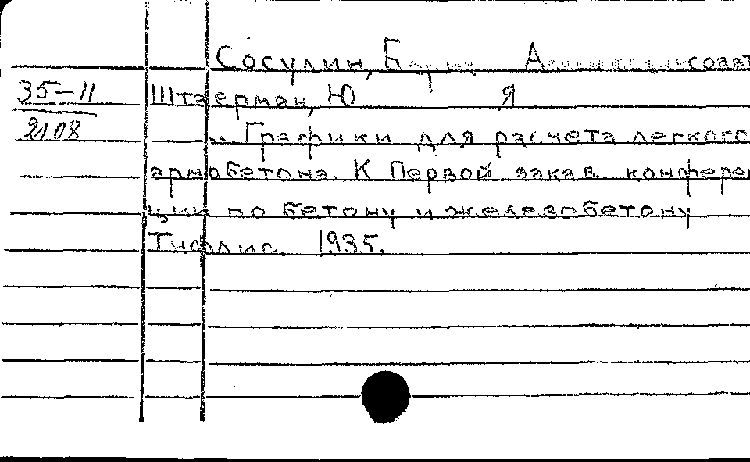 Сосулин, Борис А
35-11
Штаерман, Ю Я
2108
Графики для расчета легкого
армобетона. К Первой закав. конферен
ции по бетону и железобетону
Тифлис. 1935.